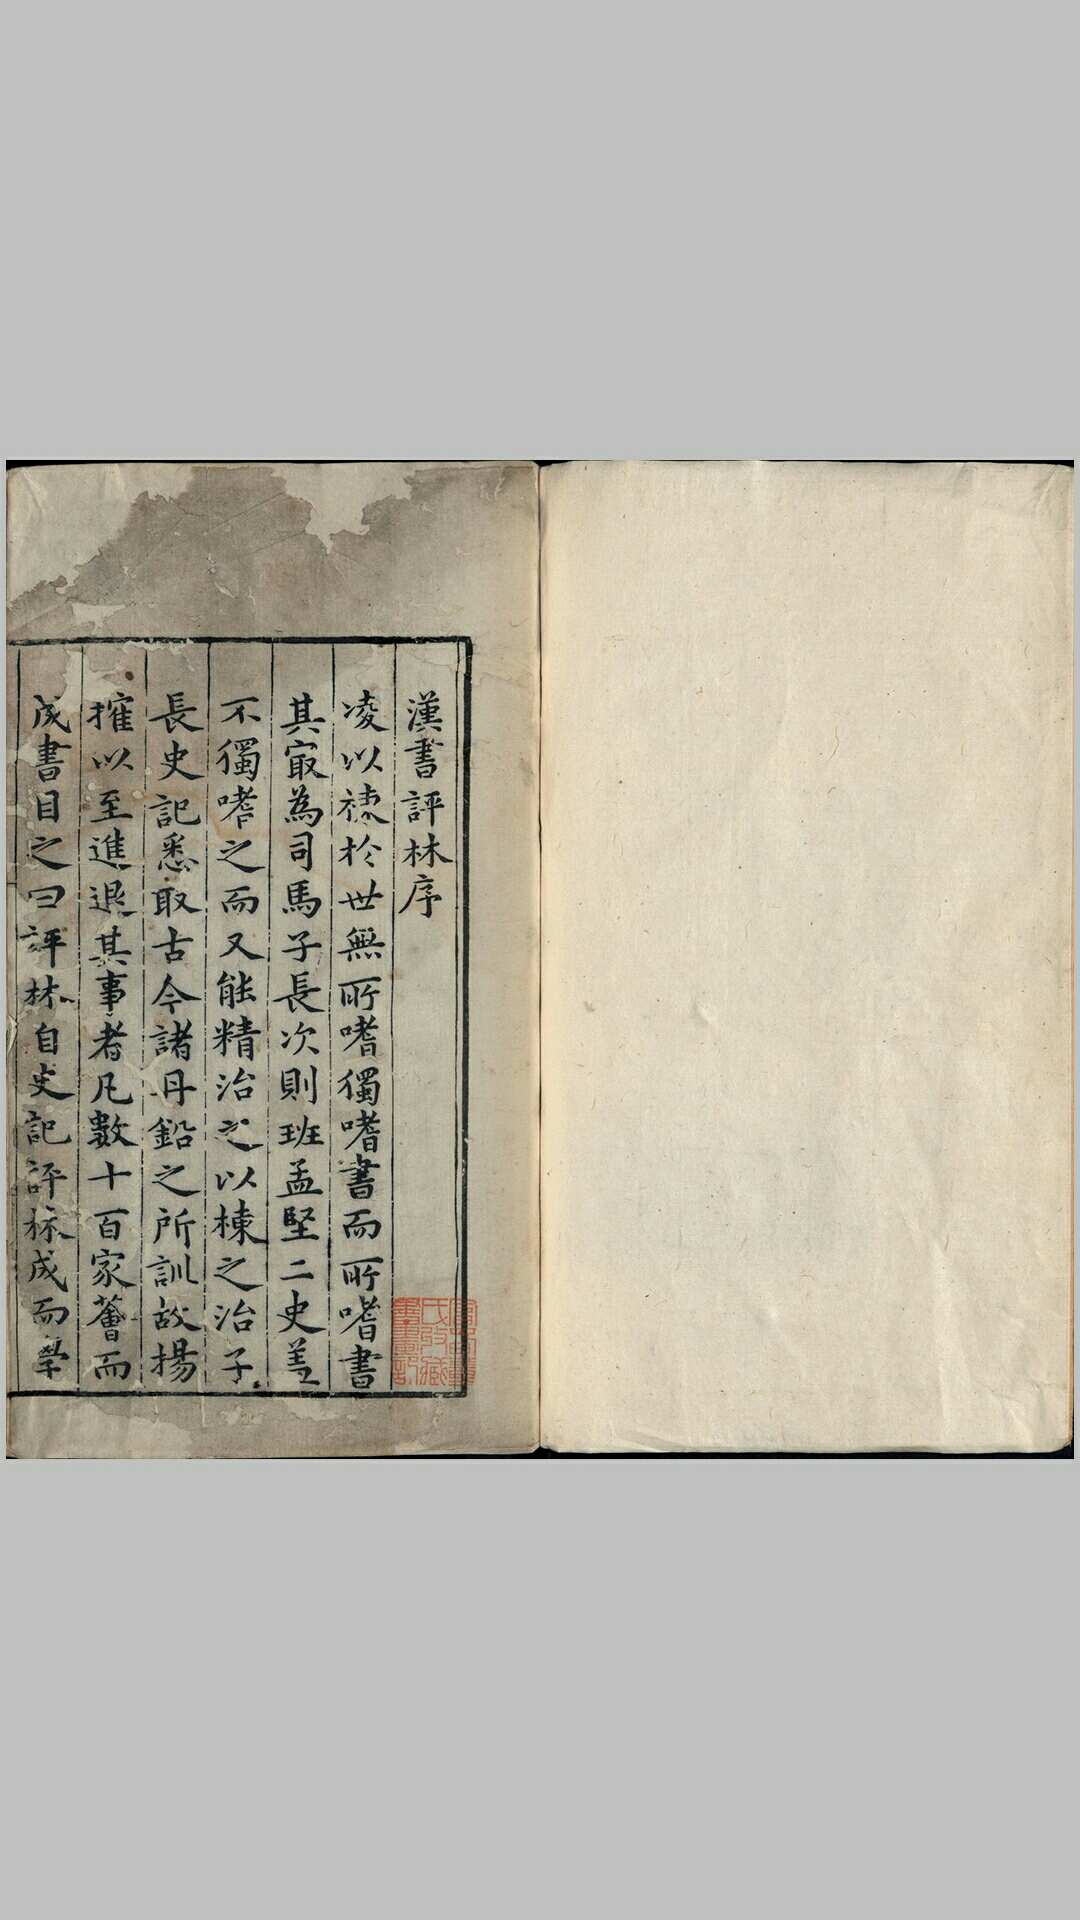 漢書評林序
凌以棟於世無所嗜獨嗜書而所嗜書
其冣為司馬子長次則班孟堅二史葢
不獨嗜之而又能精治之以棟之治子
長史記悉取古今諸丹鉛之所訓故揚
搉以至進退其事者凡數十百家薈而
成書目之曰評林自史記評林成而學